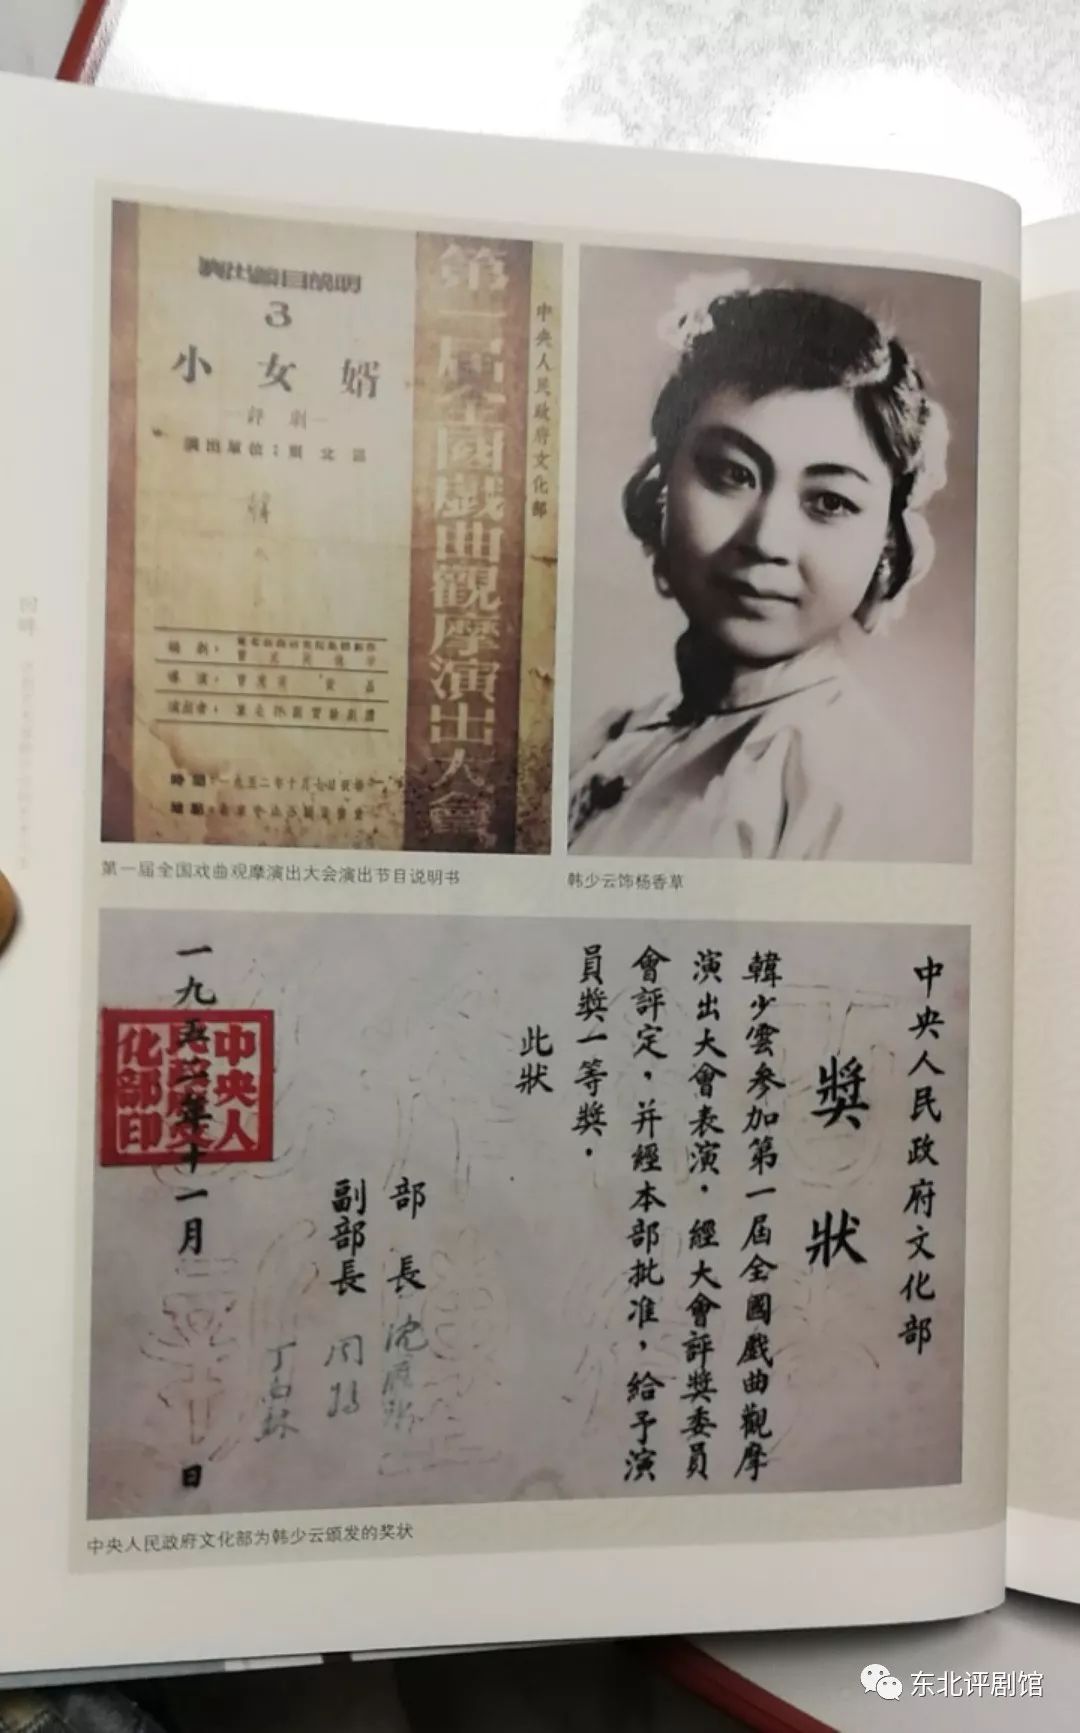 演出節目說明
3
小女婿
評劇
演出單位：東北區
編劇：
導演：
演出者：
時間：一九五二年十月七日
第一屆全國戲曲觀摩演出大會
中央人民政府文化部
第一届全国戏曲观摩演出大会演出节目说明书
韩少云饰杨香草
中央人民政府文化部
獎狀
韓少雲參加第一屆全國戲曲觀摩
演出大會表演，經大會評獎委員
會評定，并經本部批准，給予演
員獎一等獎。
此狀
部長 沈雁冰
副部長 周揚
丁西林
一九五二年十一月 日
中央人民政府文化部印
中央人民政府文化部为韩少云颁发的奖状
东北评剧馆